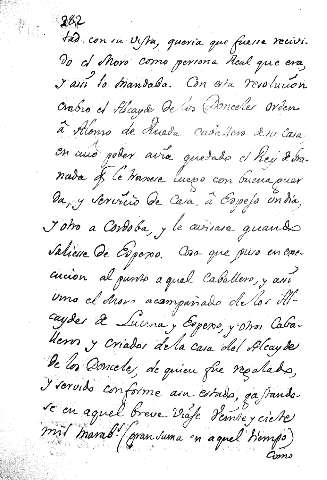 282
tad. con su vista, queria que fuesse recivi-
do el Moro como persona Real que era,
y assi lo mandaba. Con esta resolucion
embio el Alcayde de los Donceles orden
â Alonso de Rueda cavallero de su casa
en cuio poder avia quedado el Rey de Gra-
nada qe. le traxese luego con buena guar-
da, y servicio de Casa, â Espejo un dia,
y otro a Cordoba, y le avisase quando
saliese de Espexo. Caso que puso en exe-
cucion al punto aquel Caballero, y assi
vino el Moro acompañado de los Al-
caydes de Lucena y Espexo, y otros Caba-
lleros y criados de la casa del Alcayde
de los Donceles, de quien fue regalado,
y servido conforme a su estado, gastando-
se en aquel breve viaje veinte y ciete
mil marabs. (gran suma en aquel tiempo)
Como